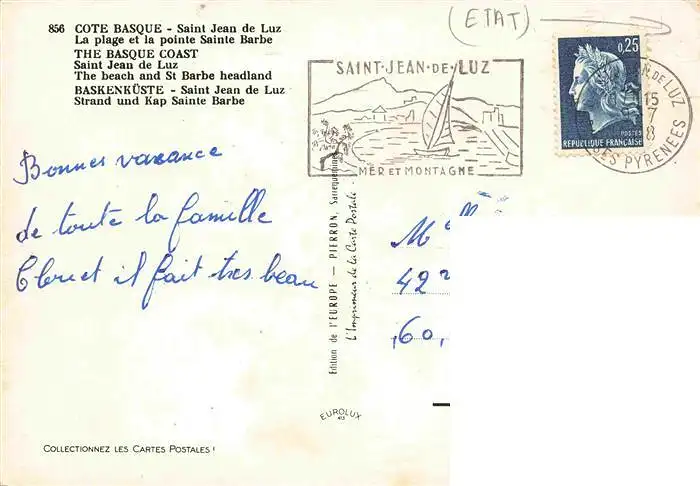 (ETAT)
856 COTE BASQUE - Saint Jean de Luz
La plage et la pointe Sainte Barbe
THE BASQUE COAST
Saint Jean de Luz
The beach and St Barbe headland
BASKENKÜSTE - Saint Jean de Luz
Strand und Kap Sainte Barbe
SAINT·JEAN·DE·LUZ
MER ET MONTAGNE
0,25
POSTES
RÉPUBLIQUE FRANÇAISE
DE LUZ
15
7
8
PYRENEES
Bonnes vacance
de toute la famille
et il fait tres beau
M
42
60,
Edition de l'EUROPE — PIERRON, Sarreguemines
L'Imprimeur de la Carte Postale
EUROLUX
COLLECTIONNEZ LES CARTES POSTALES !